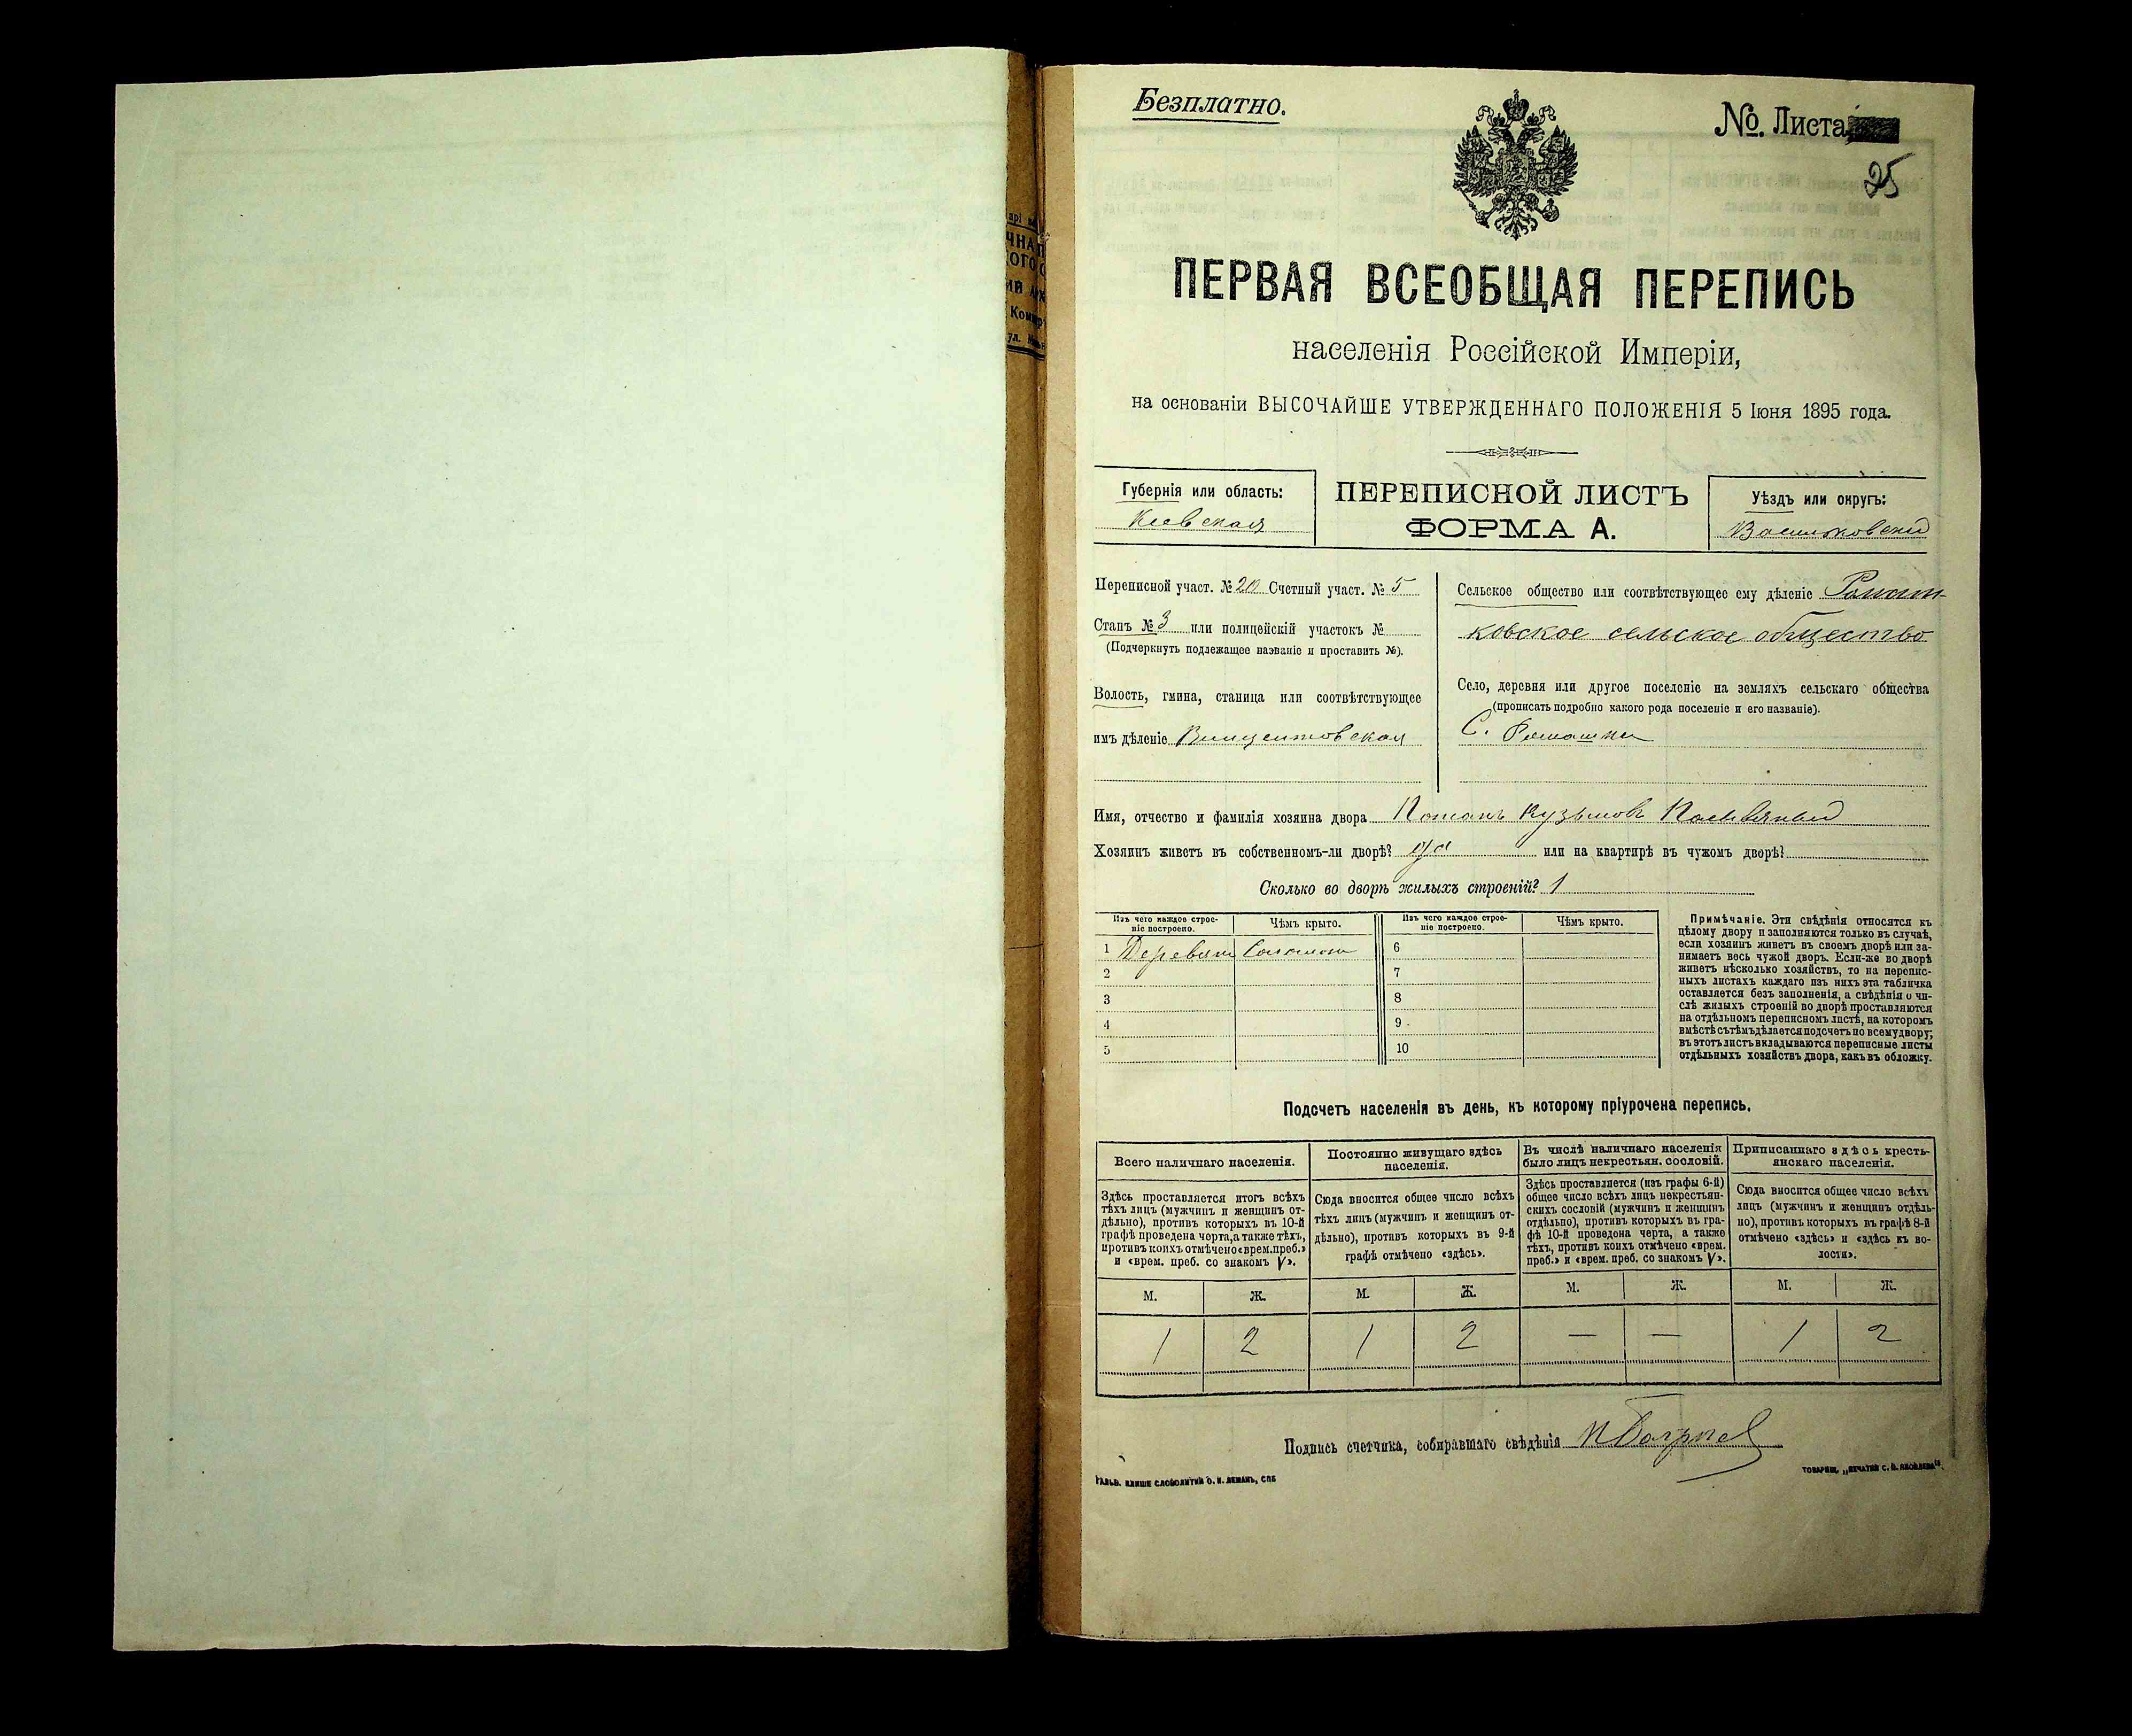 Безплатно.
№. Листа
25
ПЕРВАЯ ВСЕОБЩАЯ ПЕРЕПИСЬ
населенія Россійской Имперіи,
на основаніи ВЫСОЧАЙШЕ УТВЕРЖДЕННАГО ПОЛОЖЕНІЯ 5 Іюня 1895 года.
Губернія или область:
Кіевская
ПЕРЕПИСНОЙ ЛИСТЪ
ФОРМА А.
Уѣздъ или округъ:
Васильковскій
Переписной участ. № 20 Счетный участ. № 5
Станъ № 3 или полицейскій участокъ №
(Подчеркнуть подлежащее названіе и проставить №).
Волость, гмина, станица или соотвѣтствующее
имъ дѣленіе Винцентовская
Сельское общество или соотвѣтствующее ему дѣленіе Ромаш-
ковское сельское общество
Село, деревня или другое поселеніе на земляхъ сельскаго общества
(прописать подробно какого рода поселеніе и его названіе).
С. Ромашки
Имя, отчество и фамилія хозяина двора Потапъ Кузьмовъ
Хозяинъ живетъ въ собственномъ-ли дворѣ? да или на квартирѣ въ чужомъ дворѣ?
Сколько во дворѣ жилыхъ строеній? 1
Изъ чего каждое строе-
ніе построено.
Чѣмъ крыто.
Изъ чего каждое строе-
ніе построено.
Чѣмъ крыто.
1 Деревян Соломою
2
3
4
5
6
7
8
9
10
Примѣчаніе. Эти свѣдѣнія относятся къ
цѣлому двору и заполняются только въ случаѣ,
если хозяинъ живетъ въ своемъ дворѣ или за-
нимаетъ весь чужой дворъ. Если-же во дворѣ
живетъ нѣсколько хозяйствъ, то на перепис-
ныхъ листахъ каждаго изъ нихъ эта табличка
оставляется безъ заполненія, а свѣдѣнія о чи-
слѣ жилыхъ строеній во дворѣ проставляются
на отдѣльномъ переписномъ листѣ, на которомъ
вмѣстѣ съ тѣмъ дѣлается подсчетъ по всему двору;
въ этотъ листъ вкладываются переписные листы
отдѣльныхъ хозяйствъ двора, какъ въ обложку.
Подсчетъ населенія въ день, къ которому пріурочена перепись.
Всего наличнаго населенія.
Здѣсь проставляется итогъ всѣхъ
тѣхъ лицъ (мужчинъ и женщинъ от-
дѣльно), противъ которыхъ въ 10-й
графѣ проведена черта, а также тѣхъ,
противъ коихъ отмѣчено «врем. преб.»
и «врем. преб. со знакомъ V».
Постоянно живущаго здѣсь
населенія.
Сюда вносится общее число всѣхъ
тѣхъ лицъ (мужчинъ и женщинъ от-
дѣльно), противъ которыхъ въ 9-й
графѣ отмѣчено «здѣсь».
Въ числѣ наличнаго населенія
было лицъ некрестьян. сословій.
Здѣсь проставляется (изъ графы 6-й)
общее число всѣхъ лицъ некрестьян-
скихъ сословій (мужчинъ и женщинъ
отдѣльно), противъ которыхъ въ гра-
фѣ 10-й проведена черта, а также
тѣхъ, противъ коихъ отмѣчено «врем.
преб.» и «врем. преб. со знакомъ V».
Приписаннаго здѣсь кресть-
янскаго населенія.
Сюда вносится общее число всѣхъ
лицъ (мужчинъ и женщинъ отдѣль-
но), противъ которыхъ въ графѣ 8-й
отмѣчено «здѣсь» и «здѣсь къ во-
лости».
М. Ж. М. Ж. М. Ж. М. Ж.
1 2 1 2 — — 1 2
Подпись счетчика, собиравшаго свѣдѣнія
ГАЛЬВ. КЛИШЕ СЛОВОЛИТНИ О. И. ЛЕМАНЪ, СПБ
ТОВАРИЩ. „ПЕЧАТНЯ С. П. ЯКОВЛЕВА".